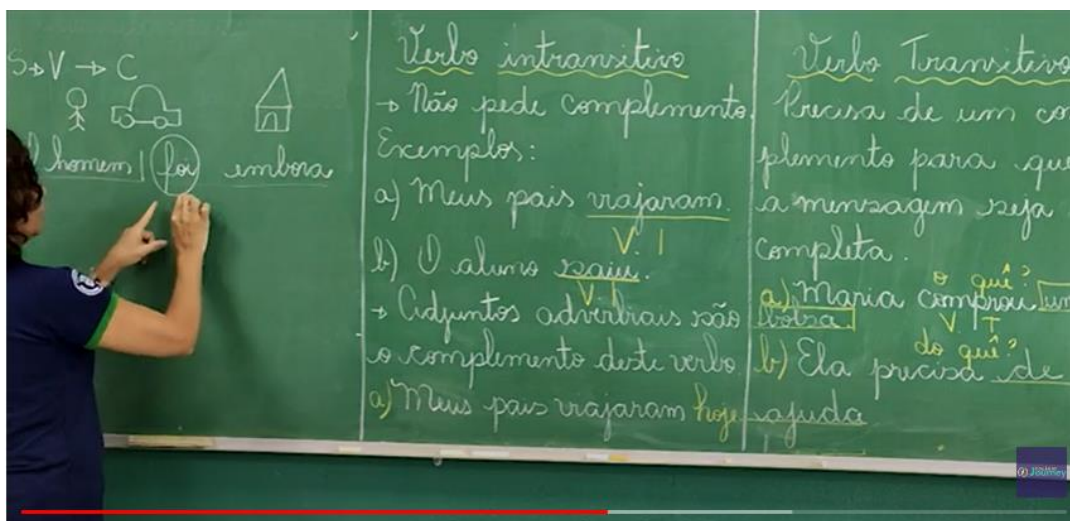 S→V→C
homem | foi embora
Verbo intransitivo
→ Não pede complemento.
Exemplos:
a) Meus pais viajaram.
V. I
b) O aluno saiu.
V. I
→ Adjuntos adverbiais são
o complemento deste verbo
a) Meus pais viajaram hoje
Verbo Transitivo
Precisa de um com
plemento para que
a mensagem seja
completa.
o quê?
a) Maria comprou um
bolsa.
V. T
do quê?
b) Ela precisa de
ajuda
Journey